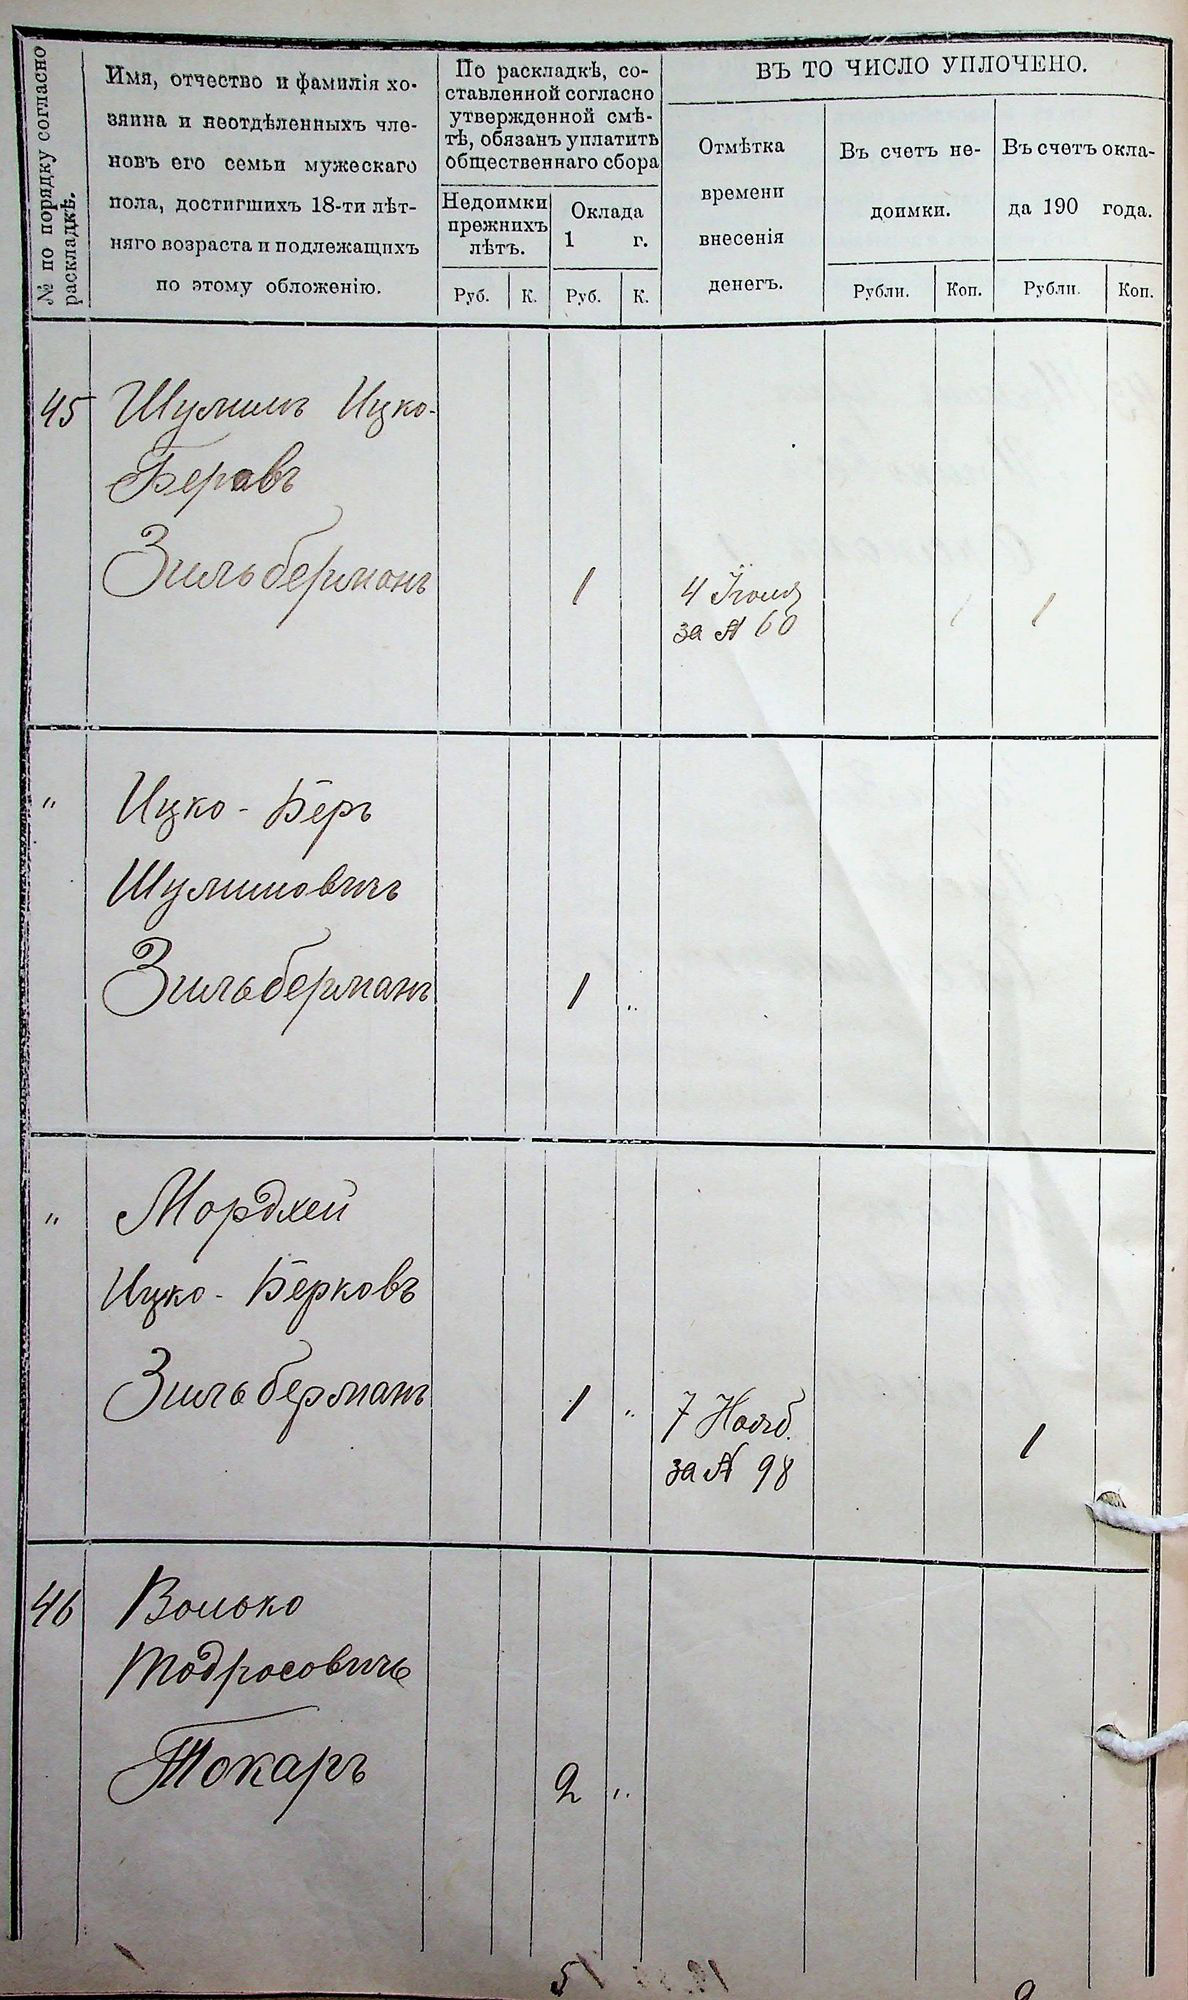 № по порядку согласно
раскладкѣ.
Имя, отчество и фамилія хо-
зяина и неотдѣленныхъ чле-
новъ его семьи мужескаго
пола, достигшихъ 18-ти лѣт-
няго возраста и подлежащихъ
по этому обложенію.
По раскладкѣ, со-
ставленной согласно
утвержденной смѣ-
тѣ, обязанъ уплатить
общественнаго сбора
Недоимки
прежнихъ
лѣтъ.
Оклада
1 г.
Руб. К. Руб. К.
ВЪ ТО ЧИСЛО УПЛОЧЕНО.
Отмѣтка
времени
внесенія
денегъ.
Въ счетъ не-
доимки.
Въ счетъ окла-
да 190 года.
Рубли. Коп. Рубли. Коп.
45 Шулимъ Ицко-
Беровъ
Зильберманъ 1 4 Іюля 1
за № 60
" Ицко-Беръ
Шулимовичъ
Зильберманъ 1 "
" Мордхей
Ицко-Берковъ
Зильберманъ 1 " 7 Нояб. 1
за № 98
46 Волько
Тодросовичъ
Токаръ 2 "
5 2